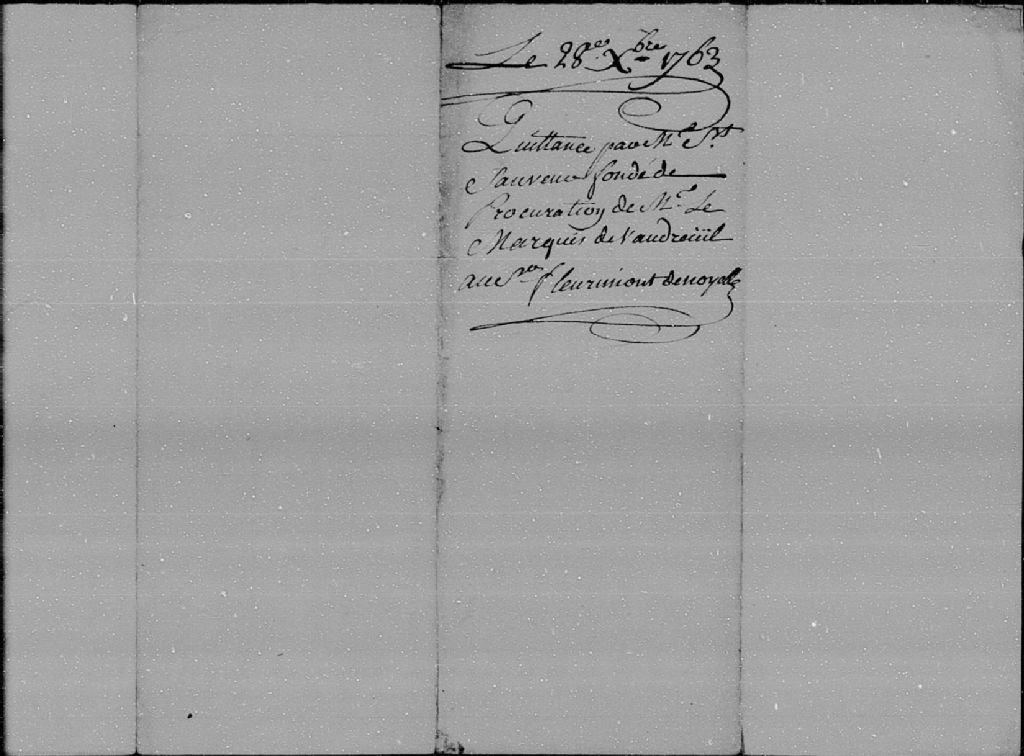 Le 28es Xbre 1763
Quittance par Mr. St
Sauveur fondé de
Procuration de Mr. Le
Marquis de Vaudreüil
au Sr. fleurimont denoyelle